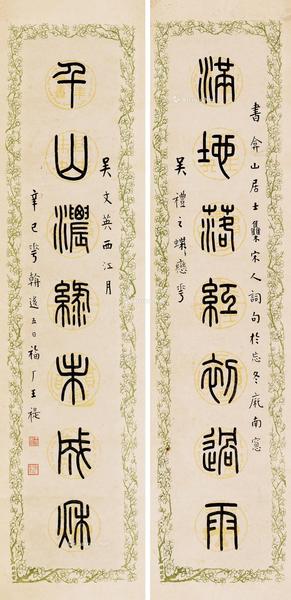 滿地落紅初過雨
書弇山居士集宋人詞句於忘冬南窗
吳禮之蝶戀華
千山濃綠未成秌
吳文英西江月
辛巳華朝後五日福厂王禔